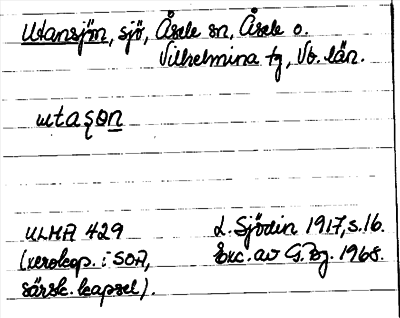 Utansjön, sjö, Åsele sn, Åsele o.
Vilhelmina tg, Vb. län.
utaşọn
ULMA 429 L. Sjödin 1917, s. 16.
(xerokop. i SOA, Exc. av G. Bg. 1968.
särsk. kapsel).